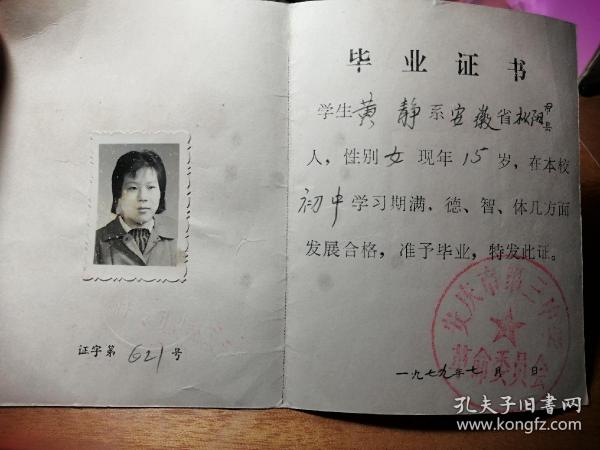 证字第621号
毕业证书
学生黄静系安徽省枞阳市县
人，性别女现年15岁，在本校
初中学习期满，德、智、体几方面
发展合格，准予毕业，特发此证。
安庆市第三中学
革命委员会
一九七九年七月 日
孔夫子旧书网
www.kongfz.com